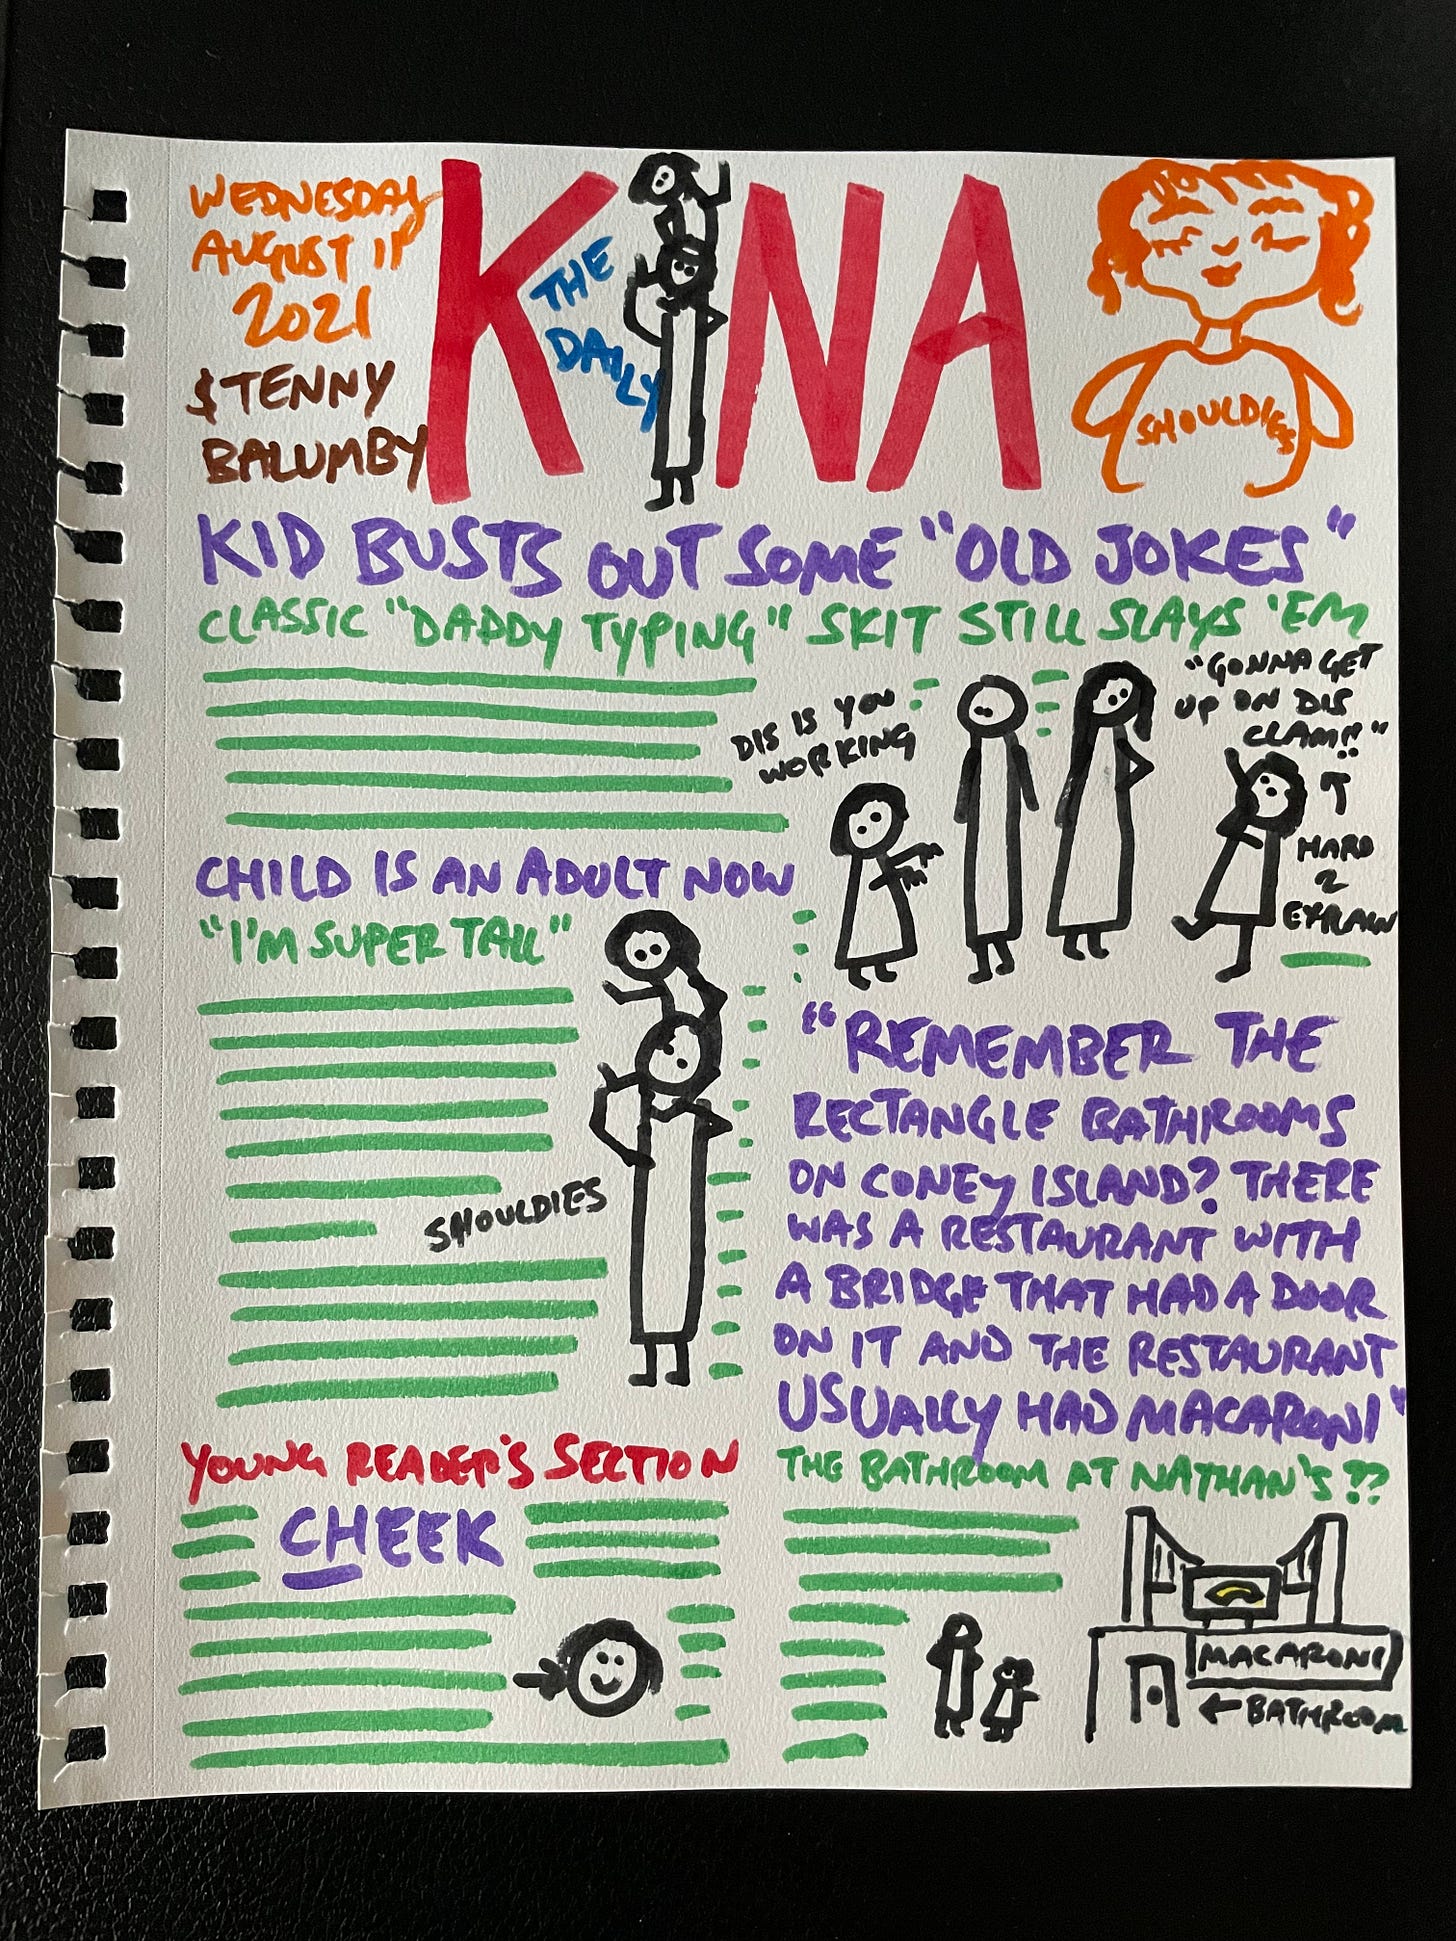 WEDNESDAY
AUGUST 11
2021
$TENNY
BALUMBY
THE
DAILY
KINA
SHOULDIES
KID BUSTS OUT SOME "OLD JOKES"
CLASSIC "DADDY TYPING" SKIT STILL SLAYS 'EM
DIS IS YOU
WORKING
"GONNA GET
UP ON DIS
CLAM!!"
HARD
2
EXPLAIN
CHILD IS AN ADULT NOW
"I'M SUPER TALL"
SHOULDIES
"REMEMBER THE
RECTANGLE BATHROOMS
ON CONEY ISLAND? THERE
WAS A RESTAURANT WITH
A BRIDGE THAT HAD A DOOR
ON IT AND THE RESTAURANT
USUALLY HAD MACARONI"
THE BATHROOM AT NATHAN'S??
MACARONI
← BATHROOM
YOUNG READER'S SECTION
CHEEK